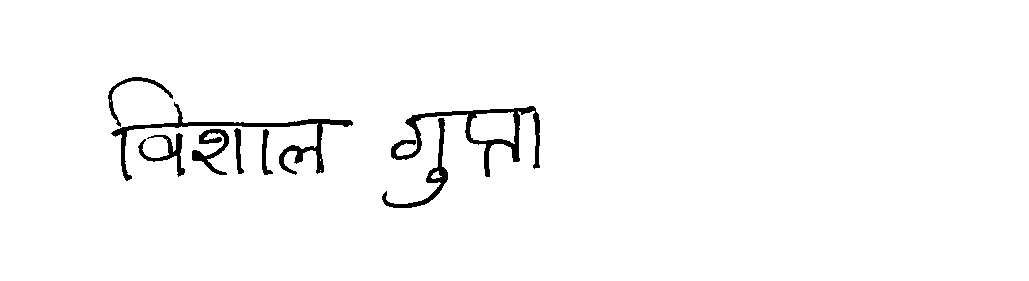 विशाल गुप्ता